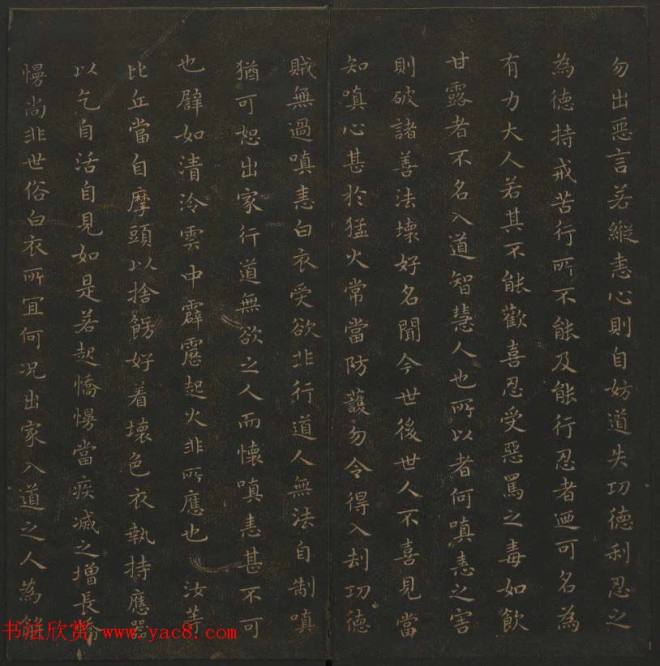 勿出惡言若縱恚心則自妨道失功德利忍之
為德持戒苦行所不能及能行忍者迺可名為
有力大人若其不能歡喜忍受惡罵之毒如飲
甘露者不名入道智慧人也所以者何嗔恚之害
則破諸善法壞好名聞今世後世人不喜見當
知嗔心甚於猛火常當防護勿令得入刦功德
賊無過嗔恚白衣受欲非行道人無法自制嗔
猶可恕出家行道無欲之人而懷嗔恚甚不可
也譬如清泠雲中霹靂起火非所應也 汝等
比丘當自摩頭以捨飾好着壞色衣執持應器
以乞自活自見如是若起憍慢當疾滅之增長憍
慢尚非世俗白衣所宜何况出家入道之人為解
书法欣赏 www.yac8.com